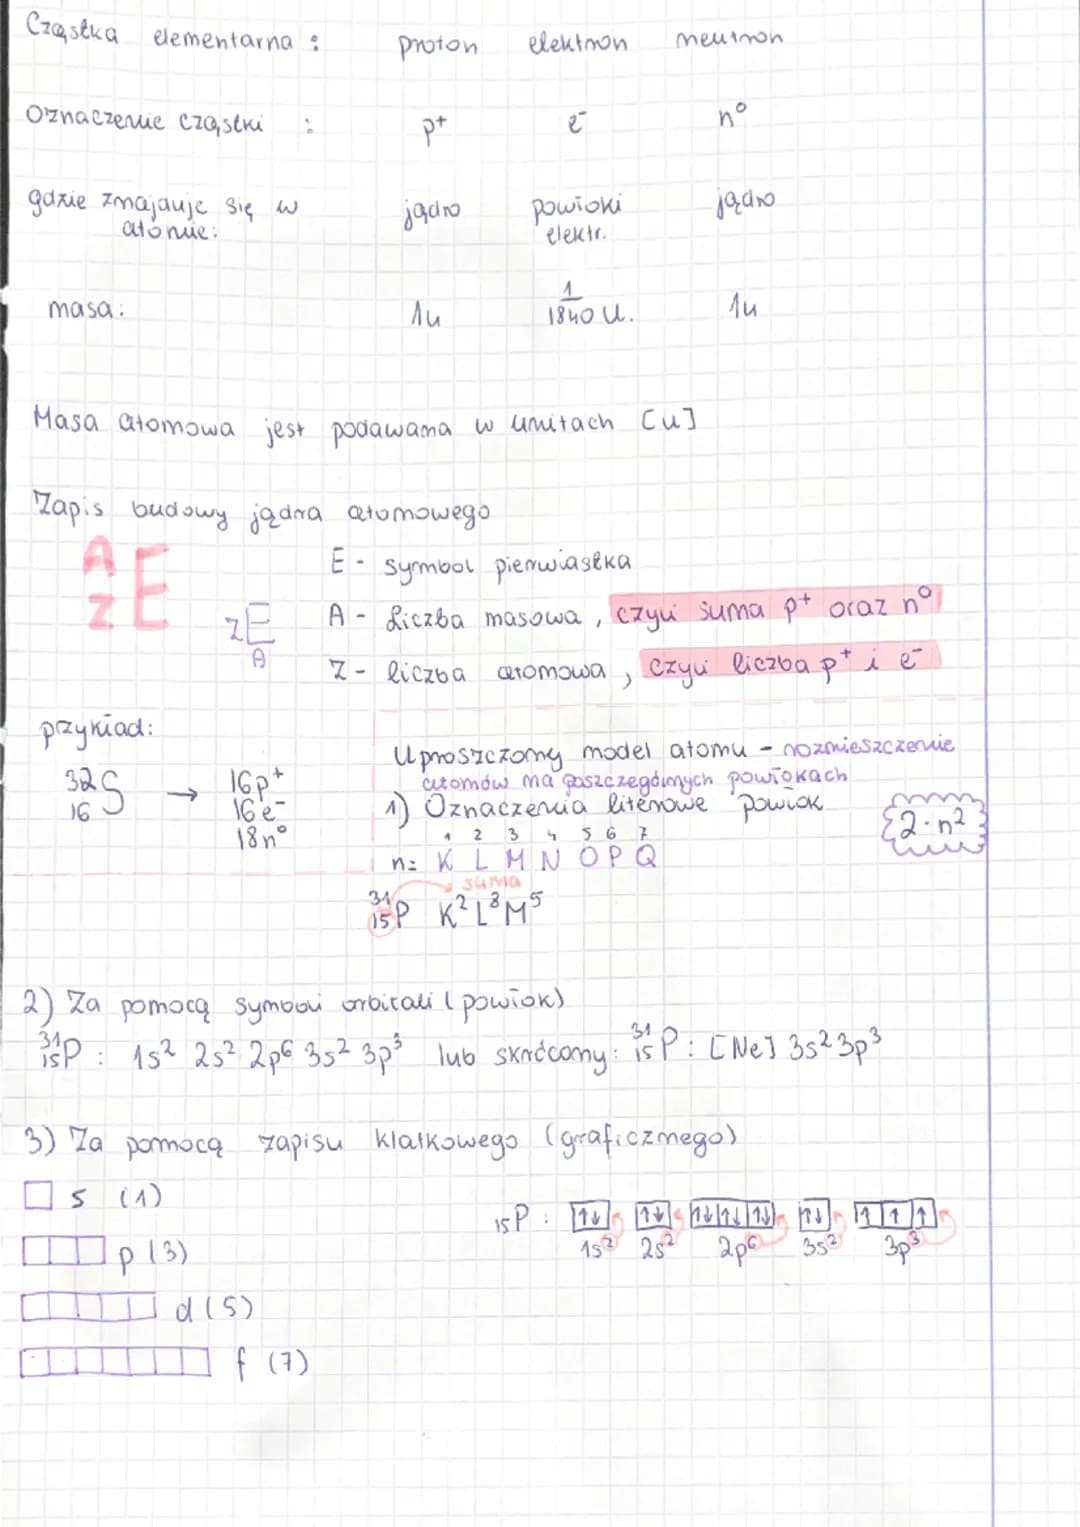 Cząstka elementarna : proton elektron neutron
Oznaczenie cząstki : p⁺ e⁻ n⁰
gdzie znajduje się w jądro powłoki jądro
atomie: elektr.
masa: 1u 1/1840 u. 1u
Masa atomowa jest podawana w unitach [u]
Zapis budowy jądra atomowego
A Z E
E - symbol pierwiastka
Z E A
A - Liczba masowa , czyli suma p⁺ oraz n⁰
Z - liczba atomowa , czyli liczba p⁺ i e⁻
przykład:
³²₁₆S → 16p⁺
16e⁻
18n⁰
Uproszczony model atomu - rozmieszczenie
atomów na poszczególnych powłokach
1) Oznaczenia literowe powłok
2·n²
1 2 3 4 5 6 7
n= K L M N O P Q
suma
³¹₁₅P K²L⁸M⁵
2) Za pomocą symboli orbitali (powłok)
³¹₁₅P : 1s² 2s² 2p⁶ 3s² 3p³ lub skrócony: ³¹₁₅P : [Ne] 3s² 3p³
3) Za pomocą zapisu klatkowego (graficznego)
s (1)
p (3)
d (5)
f (7)
₁₅P : ↑↓ ↑↓ ↑↓ ↑↓ ↑↓ ↑↓ ↑ ↑ ↑
1s² 2s² 2p⁶ 3s² 3p³